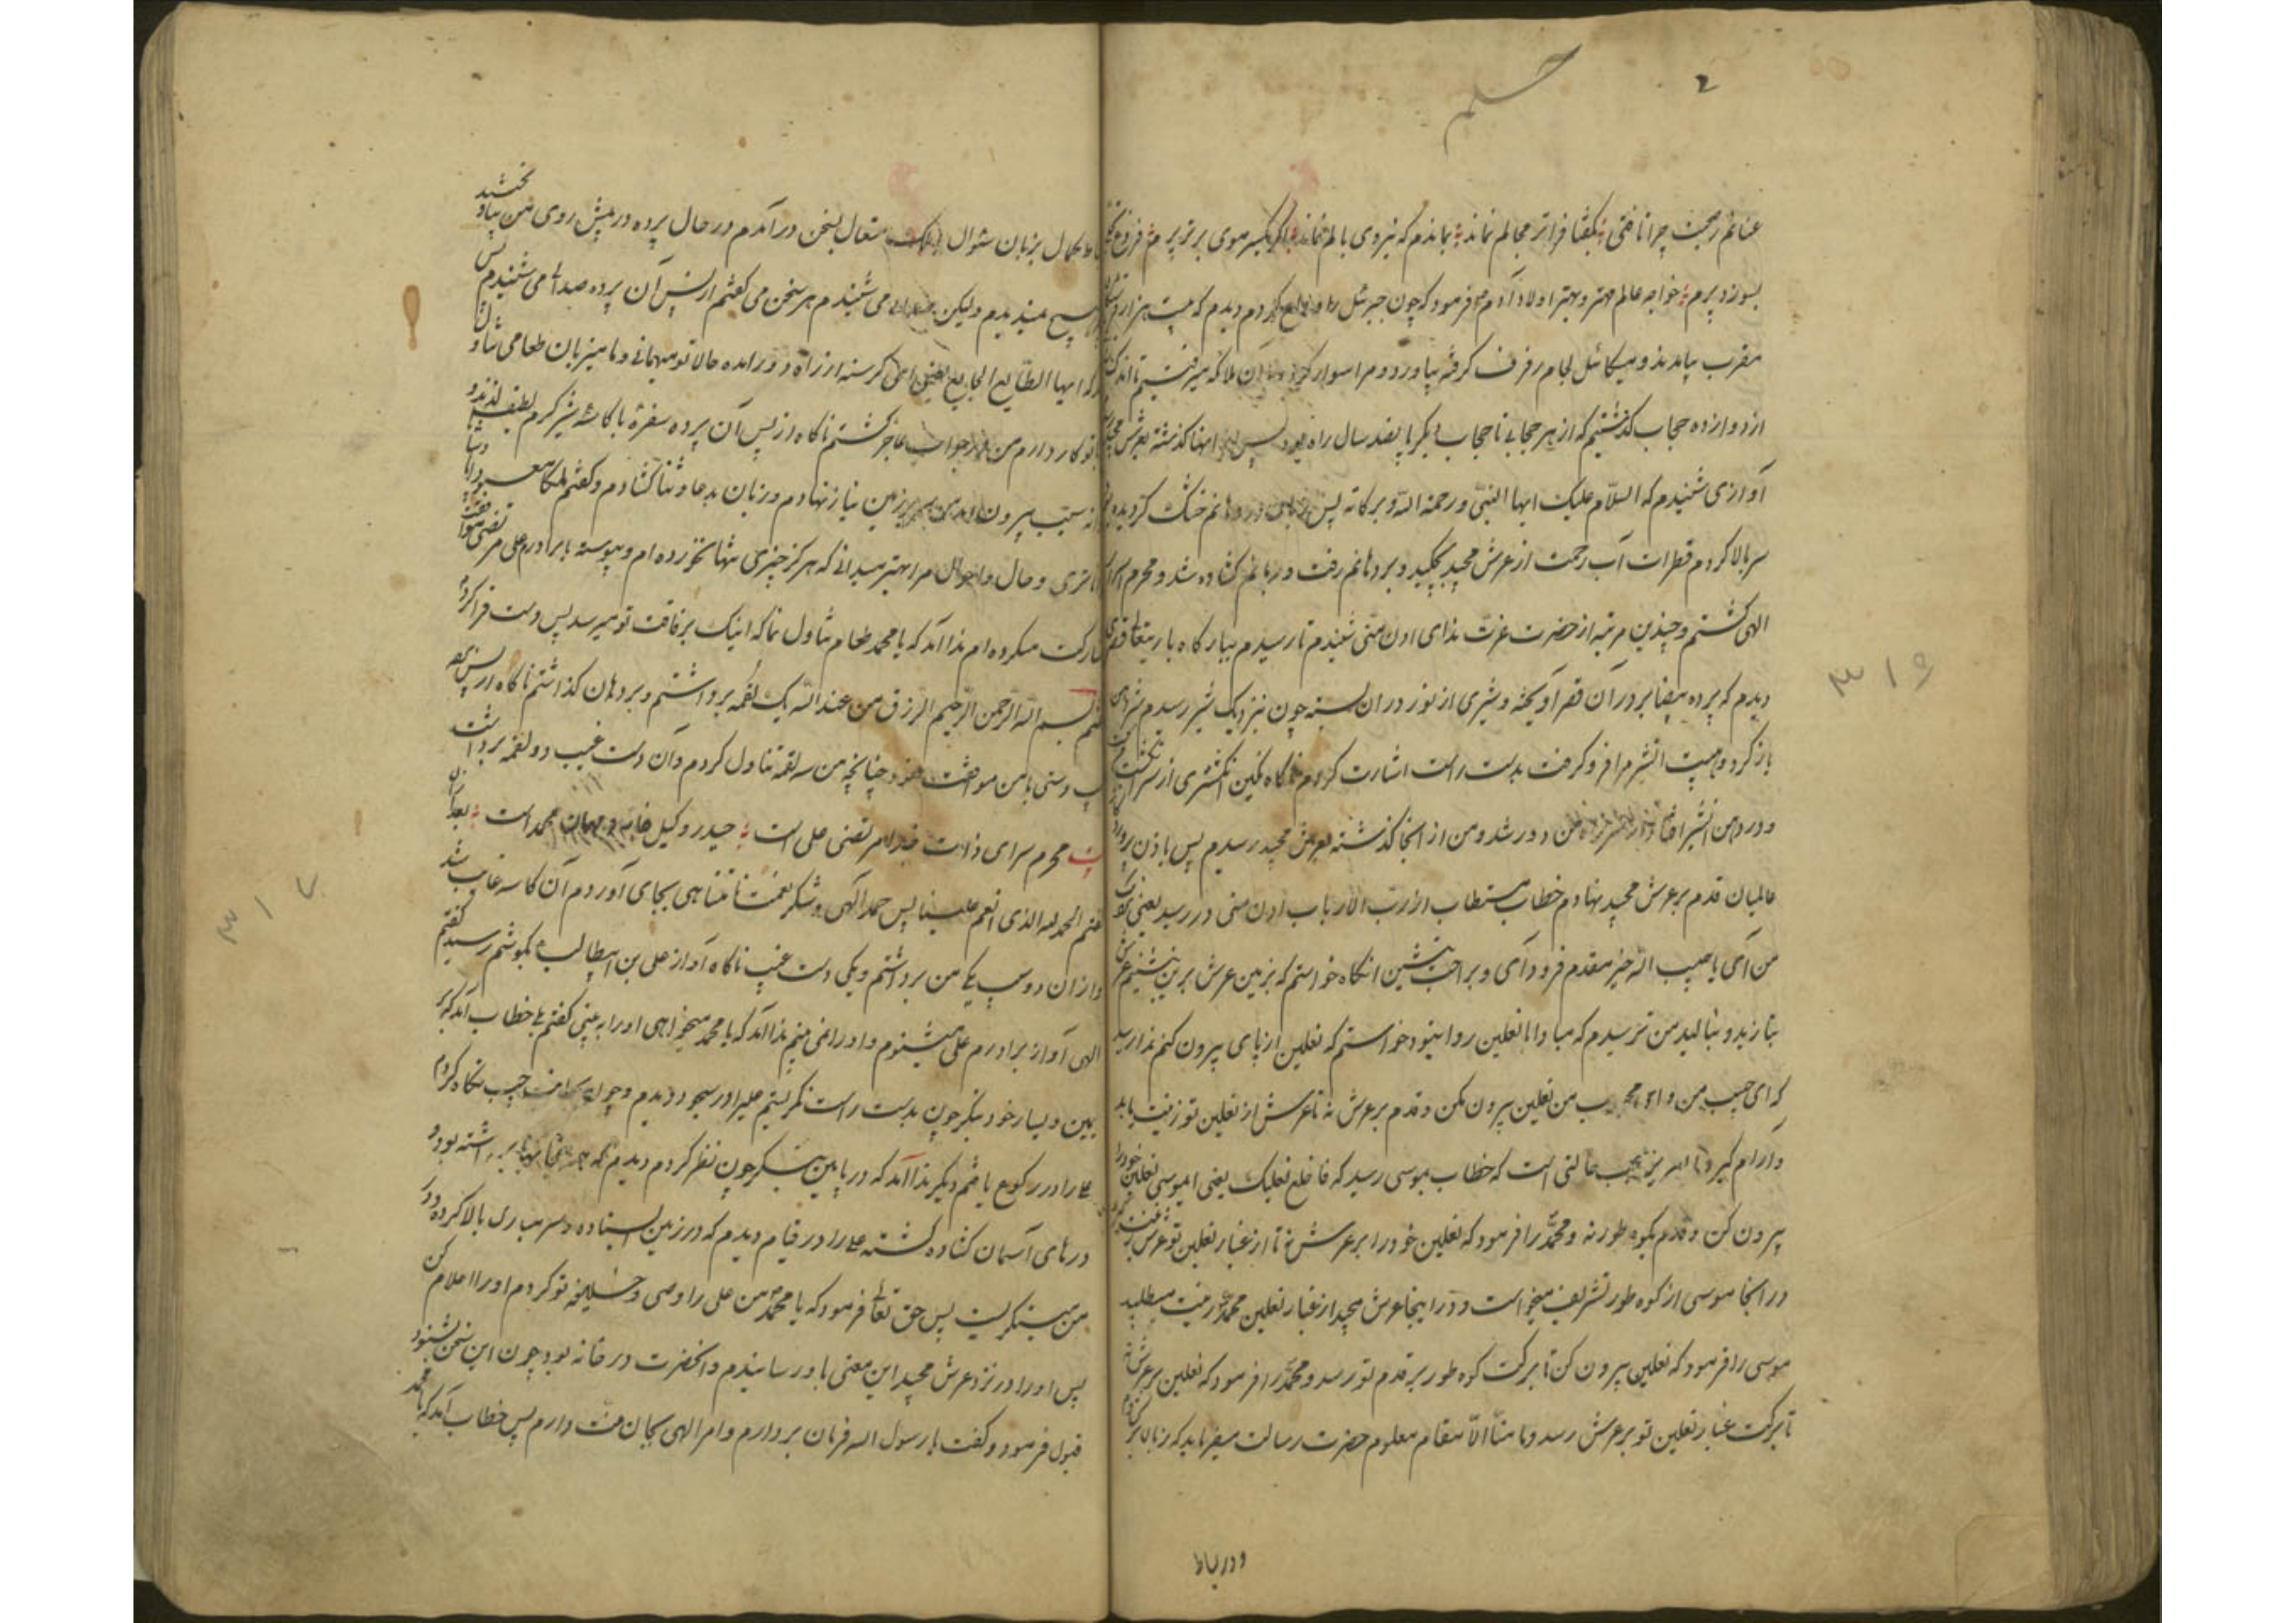 عنانم ز صحبت چرا تافتی بگفتا فراتر مجالم نماند بماندم که نیروی بالم نماند اگر یکسر موی برتر پرم فروغ
بسوزد پرم خواجه عالم مهتر و بهتر اولاد آدم فرمود که چون جبرئیل را وداع کردم دیدم که بیست هزار
مقرب بیامدند و میکائیل لجام رفرف گرفته بیاورد و مرا سوار کرد آن ملائکه میرفتیم تا اندک
از دوازده حجاب گذشتیم که از هر حجابی تا حجاب دیگر پانصد سال راه بود پس از اینها گذشته بعرش مجید
آوازی شنیدم که السلام علیک ایها النبی و رحمة الله و برکاته پس زبان در دهانم خشک گردیده
سر بالا کردم قطرات آب رحمت از عرش مجید بچکید و بر دهانم رفت و زبانم گشاده شد و محرم اسرار
الهی گشتم و چندین مرتبه از حضرت عزت ندای ادن منی شنیدم تا رسیدم ببارگاه باریتعالی قصری
دیدم که پرده بیضا بر در آن قصر آویخته و شیری از نور در آن بسته چون نزدیک شیر رسیدم شیر دهن
باز کرد و هیبت آن شیر مرا فرو گرفت بدست راست اشارت کردم ناگاه نگین انگشتری از سر انگشت
و در دهن آن شیر افتاد از سر راه من دور شد و من از آنجا گذشته بعرش مجید رسیدم پس باذن پروردگار
عالمیان قدم بر عرش مجید نهادم خطاب مستطاب از رب الارباب ادن منی در رسید یعنی نزدیک
من آی یا حبیب الله خیر مقدم فرود آی و براحت بنشین آنگاه خواستم که بزمین عرش برین بنشینم عرش
بنازید و بنالید من ترسیدم که مبادا با نعلین روا نبود خواستم که نعلین از پای بیرون کنم ندا رسید
که ای حبیب من و ای محبوب من نعلین بیرون مکن و قدم بر عرش نه تا عرش از نعلین تو زینت یابد
و آرام گیرد این عجب حالتی است که خطاب بموسی رسید که فاخلع نعلیک یعنی ای موسی نعلین خود را
بیرون کن و قدم بکوه طور نه و محمد را فرمود که نعلین خود را بر عرش نه تا از غبار نعلین تو عرش زینت گیرد
در آنجا موسی از کوه طور تشریف میخواست و در اینجا عرش مجید از غبار نعلین محمد زینت میطلبید
موسی را فرمود که نعلین بیرون کن تا برکت کوه طور بر قدم تو رسد و محمد را فرمود که نعلین بر عرش نه
تا برکت غبار نعلین تو بر عرش رسد و ما منا الا مقام معلوم حضرت رسالت میفرماید که زبان
و در بساط
کمال بزبان سئوال متعال بسخن درآمدم در حال پرده در پیش روی من
هیچ ندیدم ولیکن صدای می شنیدم هر سخن می گفتم از پس آن پرده صدای می شنیدم
که ایها الطایع الجایع یعنی ای گرسنه از راه دور آمده حالا تو میهمانی و ما میزبان طعامی
با تو کار دارم من در جواب عاجز گشتم ناگاه از پس آن پرده سفره با کاسه شیر گرم لطیف لذیذ و
سیب بیرون آمد من سر بر زمین نیاز نهادم و زبان بدعا و ثنا گشادم و گفتم ملکا معبودا
و حال و احوال مرا بهتر میدانی که هرگز چیزی تنها نخورده ام و پیوسته با برادرم علی مرتضی
مشارکت میکرده ام ندا آمد که یا محمد طعام تناول نما که اینک برفاقت تو میرسد پس دست فرا کردم
گفتم بسم الله الرحمن الرحیم الرزق من عند الله یک لقمه برداشتم و بر دهان گذاشتم ناگاه از پس پرده
دستی با من موافقت نمود چنانچه من سه لقمه تناول کردم و آن دست غیب دو لقمه برداشت
بیت محرم سرای ذات خدا مرتضی علی است حیدر وکیل خانه و مهمان محمد است بعد از آن
گفتم الحمد لله الذی انعم علینا پس حمد الهی و شکر نعمت نامتناهی بجای آوردم آن کاسه غایب شد
و از آن دو سیب یکی من برداشتم و یکی دست غیب ناگاه آواز علی بن ابیطالب بگوشم رسید گفتم
الهی آواز برادرم علی میشنوم و او را نمی بینم ندا آمد که یا محمد میخواهی او را به بینی گفتم بلی خطاب آمد که بر
یمین و یسار خود بنگر چون بدست راست نگریستم علی را در سجود دیدم و چون بجانب چپ نگاه کردم
علی را در رکوع یافتم دیگر ندا آمد که در پایین بنگر چون نظر کردم دیدم که همه حجابها برداشته بود و
درهای آسمان گشاده گشته علی را در قیام دیدم که در زمین ایستاده و سر مبارک بالا کرده و در
من مینگریست پس حق تعالی فرمود که یا محمد من علی را وصی و خلیفه تو کردم او را اعلام کن
پس او را در نزد عرش مجید این معنی باو رسانیدم و آنحضرت در خانه بود چون این سخن بشنود
قبول فرمود و گفت یا رسول الله فرمان بردارم و امر الهی بجان منت دارم پس خطاب آمد که یا محمد
۳۱۶